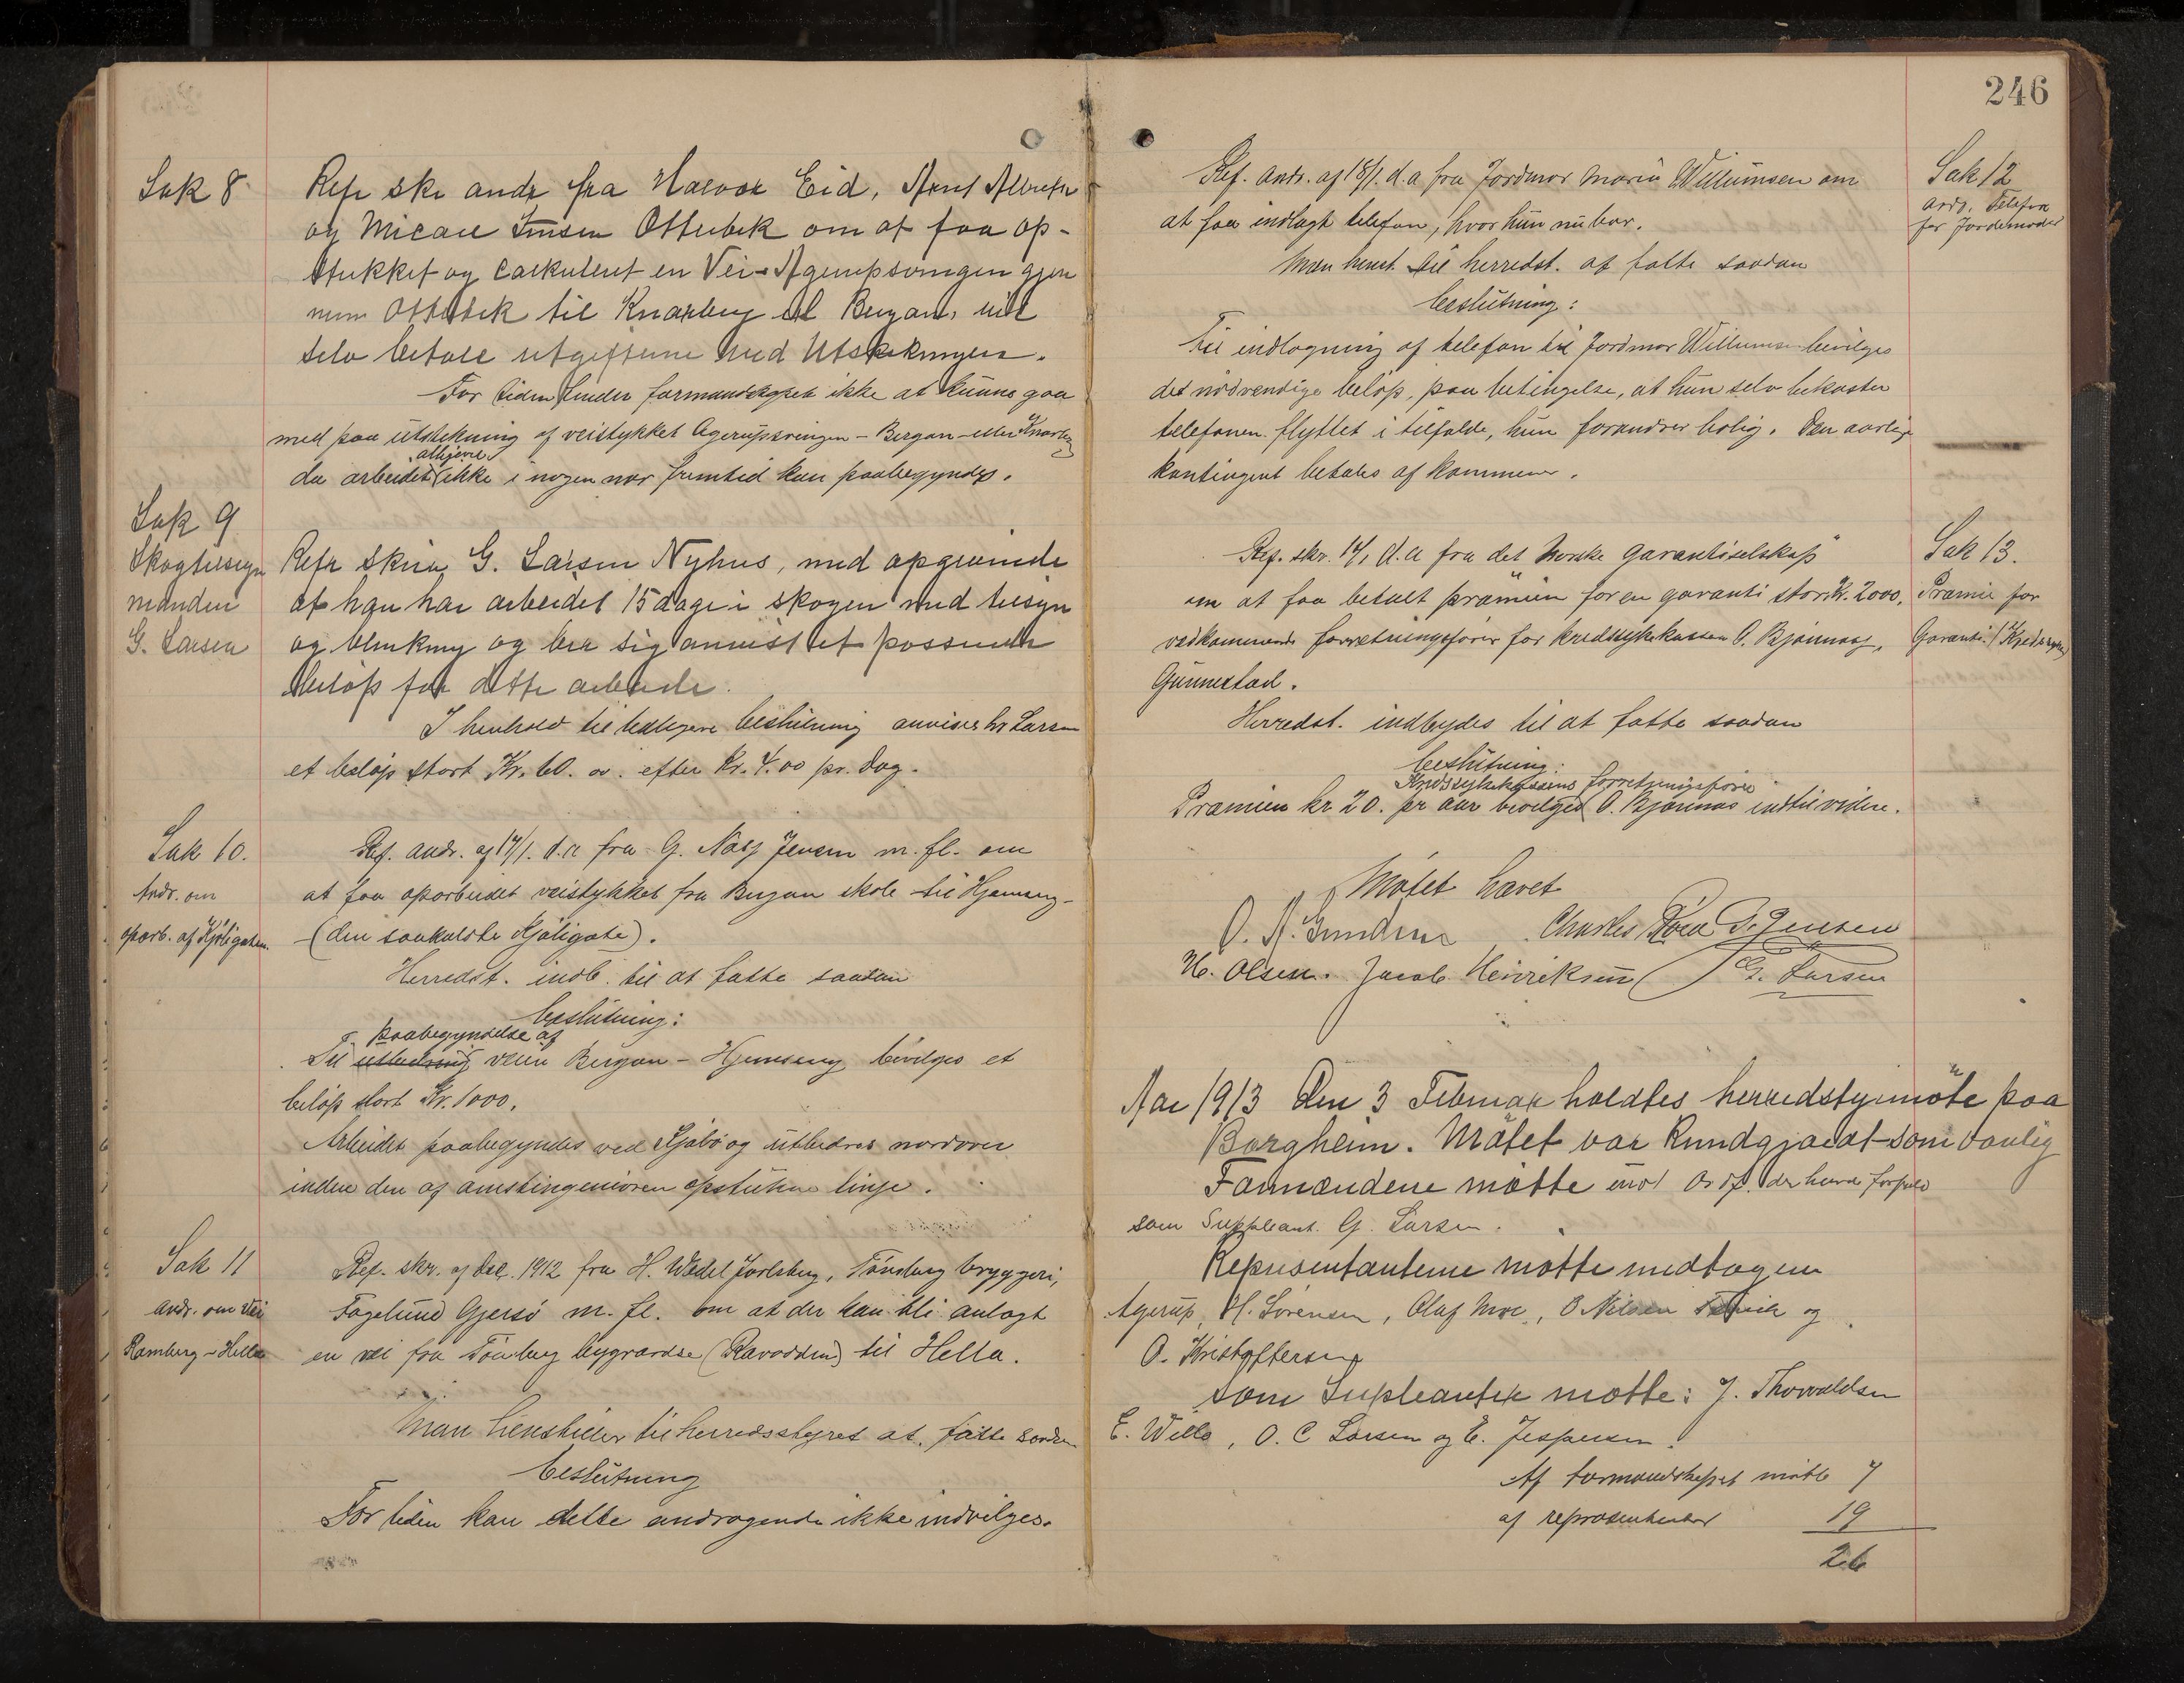 Sak 8
Refr skr andr fra Halvor Eid, Arnt
og Micael Otterbek om at faa op-
stukket og calkulert en Vei - Agerupsvingen gjen
nem Otterbek til Knarberg til Bergan, vil
selv betale utgifterne med Utstikningen.
For tiden finder formandskapet ikke at kunne gaa
med paa utstikning af veistykket Agerupsvingen - Bergan - eller Knarberg
da arbeidet ikke i nogen nær fremtid kan paabegyndes.
Sak 9
Skogtilsyns
manden
G. Larsen
Refr skriv G. G. Larsen Nyhus, med opgivende
at han har arbeidet 15 dage i skogen med tilsyn
og blinkning og ber sig anvist et passende
beløp for dette arbeide.
I henhold til tidligere beslutning anvises hr Larsen
et beløp stort Kr. 60.00. efter Kr. 4.00 pr. dag.
Sak 10.
Andr. om
oparb. af Kjøligaten.
Ref. andr. af 17/1. d.a fra G. Næss Jensen m. fl. om
at faa oparbeidet veistykket fra Bergan skole til Hjemseng
(den saakaldte Kjøligate).
Herredst. indb. til at fatte saadan
beslutning:
paabegyndelse af
Til utbedring veien Bergan - Hjemseng bevilges et
beløp stort Kr. 1000.
Arbeidet paabegyndes ved Kjøbo og utbedres nordover
indtil den af amtsingeniøren opstukne linje.
Sak 11
andr. om Vei
Ramberg - Hella
Ref. skr. af Dec. 1912 fra H. Wedel Jarlsberg, Tønsberg bryggeri,
Fagelund Gjersø m. fl. om at der kan bli anlagt
en vei fra Tønsberg bygrændse (Ravodden) til Hella.
Man henstiller til herredsstyret at fatte saadan
beslutning
For tiden kan dette andragende ikke indvilges.
246
Sak 12
andr. Telefon
for Jordemoder
Ref. andr. af 18/1. d.a fra Jordmor Maria Willumsen om
at faa indlagt telefon, hvor hun nu bor.
Man henst. til herredst. at fatte saadan
beslutning:
Til indlægning af telefon til Jordmor Willumsen bevilges
det nødvendige beløp, paa betingelse, at hun selv bekoster
telefonen flyttet i tilfælde, hun forandrer bolig. Den aarlige
kontingent betales af kommunen.
Sak 13.
Præmie for
Garanti (Kredssyk.)
Ref. skr. 14/1 d.a fra det Norske Garantiselskap
om at faa betalt præmien for en garanti stor Kr. 2000,
vedkommende forretningsfører for kredssykekassen O. Bjønnaas,
Gunnestad.
Herredst. indbydes til at fatte saadan
beslutning:
Kredssykekassens forretningsfører
Præmien kr 20. pr aar bevilges O. Bjønnes indtil videre.
Møtet hævet
O. A. Gundersen Charles Roed P. Jensen
H. Olsen. Jacob Henriksen G. Larsen
Aar 1913 den 3 Februar holdtes herredstyrmøte paa
Borgheim. Møtet var kundgjordt som vanlig
Formændene møtte und Ordf. der havde forfald
som Suppleant G. Larsen.
Representanterne møtte undtagen
Agerup, H. Sørensen, Olaf Moe, O Nilsen og
O. Kristoffersen
som Supleanter møtte: J. Thorvaldsen
E. Wille, O. C Larsen og E. Jespersen.
Af formandskapet møtte 7
af repræsentanter 19
26